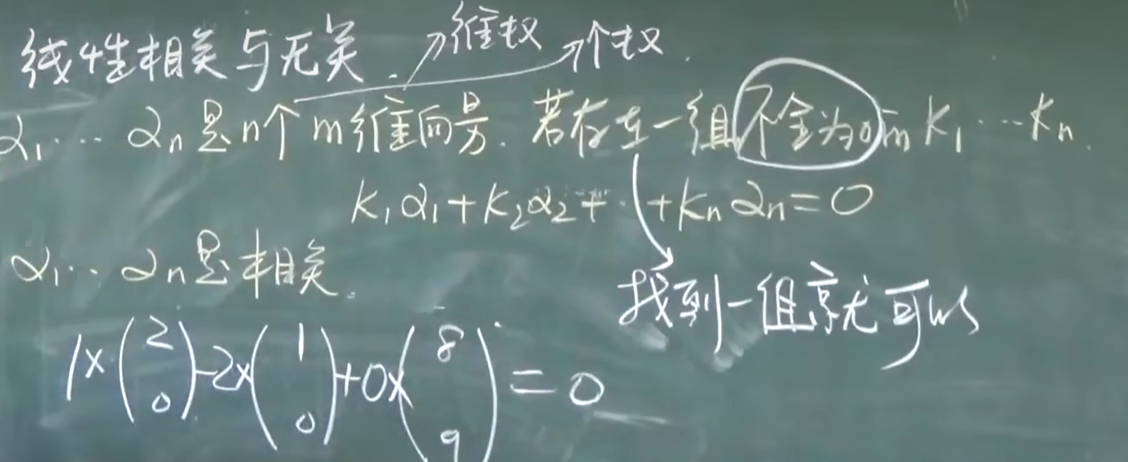 线性相关与无关. →维数 →个数.
α₁ ⋯ αₙ是n个m维向量. 若存在一组不全为0的 K₁ ⋯ Kₙ.
K₁α₁+K₂α₂+⋯+Kₙαₙ=0
α₁⋯αₙ是相关.
找到一组就可以
1×(2 0)-2×(1 0)+0×(8 9)=0